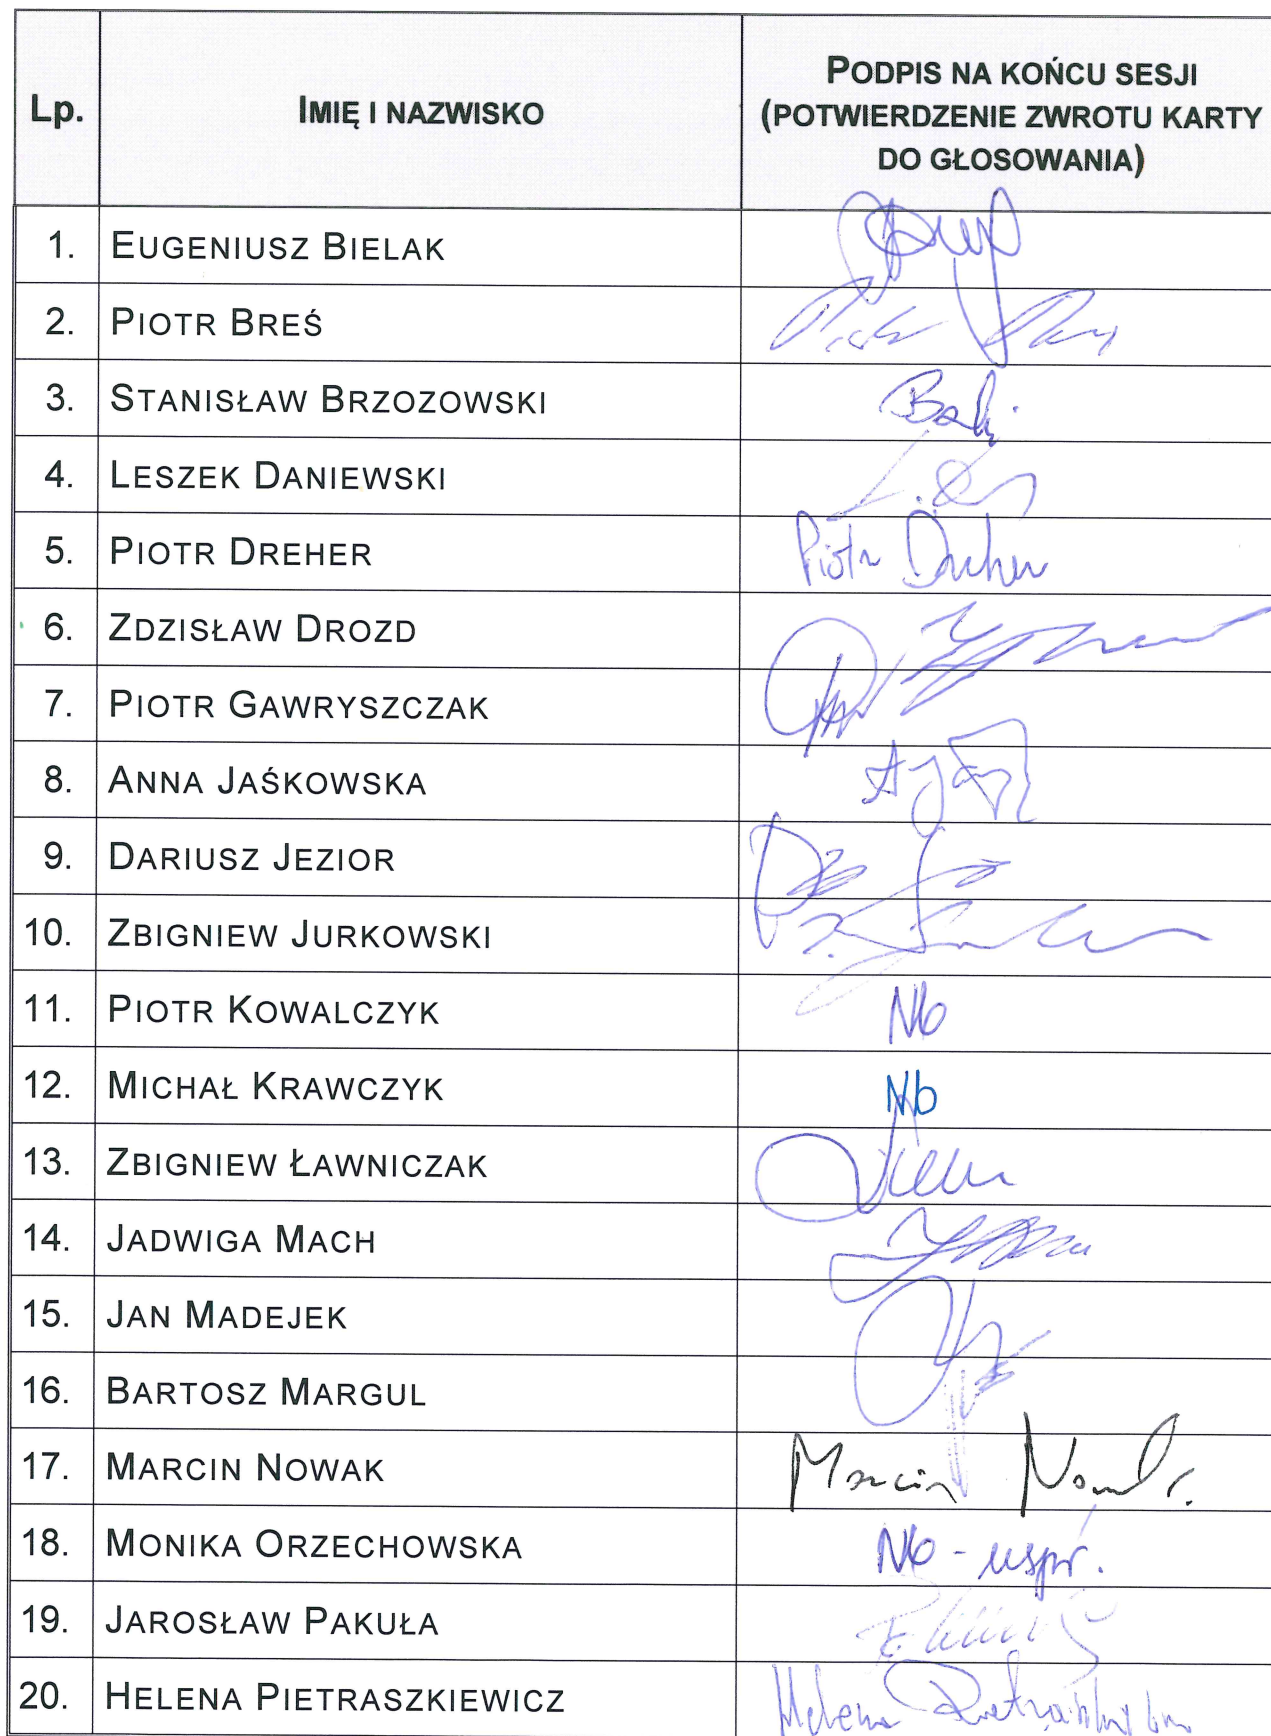 Lp. IMIĘ I NAZWISKO PODPIS NA KOŃCU SESJI
(POTWIERDZENIE ZWROTU KARTY
DO GŁOSOWANIA)
1. EUGENIUSZ BIELAK
2. PIOTR BREŚ
3. STANISŁAW BRZOZOWSKI
4. LESZEK DANIEWSKI
5. PIOTR DREHER Piotr Dreher
6. ZDZISŁAW DROZD
7. PIOTR GAWRYSZCZAK
8. ANNA JAŚKOWSKA
9. DARIUSZ JEZIOR
10. ZBIGNIEW JURKOWSKI
11. PIOTR KOWALCZYK Nb
12. MICHAŁ KRAWCZYK Nb
13. ZBIGNIEW ŁAWNICZAK
14. JADWIGA MACH
15. JAN MADEJEK
16. BARTOSZ MARGUL
17. MARCIN NOWAK Marcin Nowak
18. MONIKA ORZECHOWSKA Nb - uspr.
19. JAROSŁAW PAKUŁA
20. HELENA PIETRASZKIEWICZ Helena Pietraszkiewicz